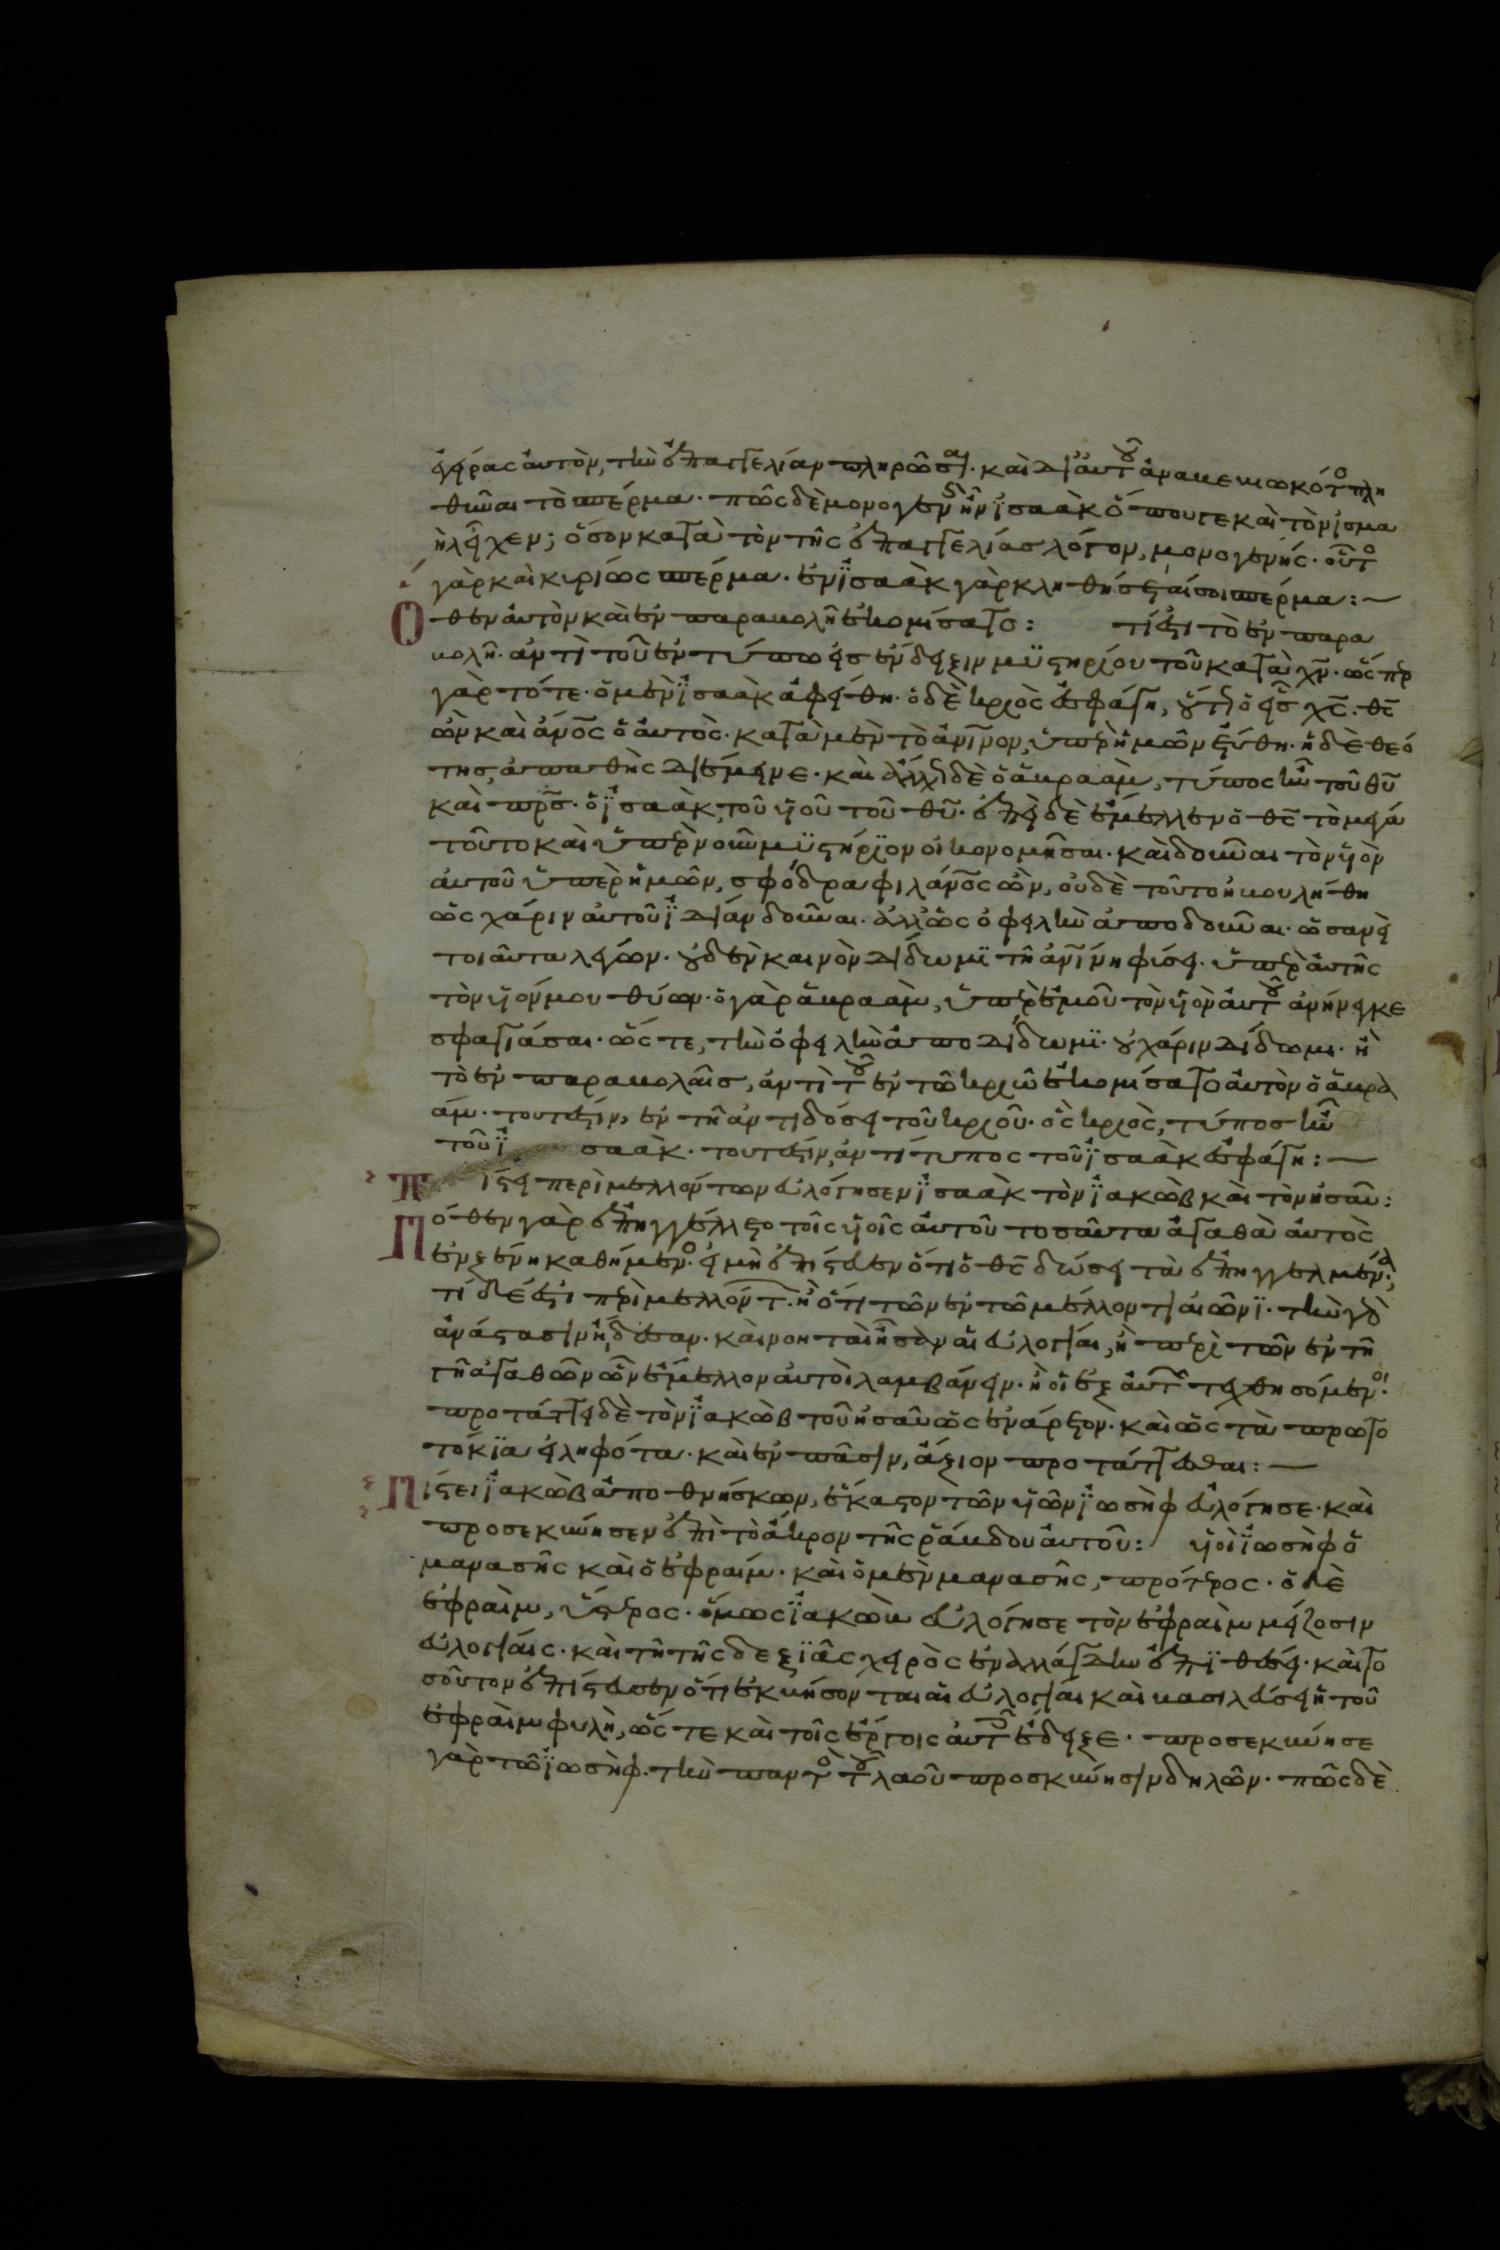 ἐγείρας αὐτὸν, τὴν ἐπαγγελίαν πληρῶσαι. καὶ δι αὐτοῦ ἀναβεβιωκότος πλη
θῦναι τὸ σπέρμα. πῶς δὲ μονογενὴς ἦν ἰσαὰκ ὅπου γε καὶ τὸν ἰσμα
ὴλ εἶχεν; ὅσον κατὰ τὸν τῆς ἐπαγγελίας λόγον, μονογενής. οὗτος
γὰρ καὶ κυρίως σπέρμα. ἐν ἰσαὰκ γὰρ κληθήσεταί σοι σπέρμα:
Ὅθεν αὐτὸν καὶ ἐν παραβολῇ ἐκομίσατο: τί ἐστι τὸ ἐν παρα
βολῇ. ἀντὶ τοῦ ἐν τύπω εἰς ἔνδειξιν μϋστηρίου τοῦ κατὰ χν. ὥσπερ
γὰρ τότε. ὁ μὲν ἰσαὰκ ἀφείθη. ὁ δὲ κριὸς ἐσφάγη, οὕτως ὁ εἷς χς. θς
ὢν καὶ ἄνος ὁ αὐτὸς. κατὰ μὲν τὸ ἀνινον, ὑπὲρ ἡμῶν ἐτύθη. ἡ δὲ θεό
της, ἀπαθὴς διέμεινε. καὶ ἄλλως δὲ ὁ ἁβραὰμ, τύπος ἦν τοῦ θυ
καὶ πρς. ὁ ἰσαὰκ, τοῦ υἱοῦ τοῦ θυ. ἐπεὶ δὲ ἔμελλεν ὁ θς τὸ μέγα
τοῦτο καὶ ὑπὲρ νοῦν μϋστήριον οἰκονομῆσαι. καὶ δοῦναι τὸν υἱὸν
αὐτοῦ ὑπὲρ ἡμῶν, σφόδρα φιλάνος ὢν, οὐδὲ τοῦτο ἠβουλήθη
ὡς χάριν αὐτοῦ ἰδίαν δοῦναι. ἀλλ ὡς ὀφειλὴν ἀποδοῦναι. ὡσανεὶ
τοιαῦτα λέγων. οὐδὲν καινὸν δίδωμϊ τῇ ἀνινη φύσει. ὑπὲρ αὐτῆς
τὸν υἱόν μου θύων. ὁ γὰρ ἁβραὰμ, ὑπὲρ ἐμοῦ τὸν υἱὸν αὐτοῦ ἀνήνεγκε
σφαγιάσαι. ὥστε, τὴν ὀφειλὴν ἀποδίδωμϊ. οὐ χάριν δίδωμι. ἢ
τὸ ἐν παραβολαῖς, ἀντὶ τοῦ ἐν τῶ κριῶ ἐκομίσατο αὐτὸν ὁ ἁβρα
άμ. τουτέστιν, ἐν τῇ ἀντιδόσει τοῦ κριοῦ. ὃς κριὸς, τύπος ἦν
τοῦ ἰσαὰκ. τουτέστιν, ἀντίτυπος τοῦ ἰσαὰκ ἐσφάγη:
Πίστει περὶ μελλόντων εὐλόγησεν ἰσαὰκ τὸν ἰακὼβ καὶ τὸν ἡσαῦ:
Πόθεν γὰρ ἐπηγγέλλετο τοῖς υἱοῖς αὐτοῦ τοσαῦτα ἀγαθὰ αὐτὸς
ἐν ξένη καθήμενος. εἰ μὴ ἐπίστευεν ὅτι ὁ θς δώσει τὰ ἐπηγγελμένα;
τί δέ ἐστι περὶ μελλόντων. ἢ ὅτι τῶν ἐν τῶ μέλλοντι αἰῶνϊ. τὴν γὰρ
ἀνάστασιν ᾔδεσαν. καὶ νοηταὶ ἦσαν αἱ εὐλογίαι, ἢ περὶ τῶν ἐν τῇ
γῇ ἀγαθῶν ὧν ἔμελλον αὐτοὶ λαμβάνειν. ἢ οἱ ἐξ αὐτῶν τεχθησόμενοι.
προτάττει δὲ τὸν ἰακὼβ τοῦ ἡσαῦ ὡς ἐνάρετον. καὶ ὡς τὰ πρωτο
τόκϊα εἰληφότα. καὶ ἐν πᾶσιν, ἄξιον προτάττεσθαι:
Πίστει ἰακὼβ ἀποθνήσκων, ἕκαστον τῶν υἱῶν ἰωσὴφ εὐλόγησε. καὶ
προσεκύνησεν ἐπὶ τὸ ἄκρον τῆς ῥάβδου αὐτοῦ: υἱοὶ ἰωσὴφ ὁ
μανασῆς καὶ ὁ ἐφραίμ. καὶ ὁ μὲν μανασῆς, πρότερος. ὁ δὲ
ἐφραὶμ, ὕστερος. ὅμως ἰακὼβ εὐλόγησε τὸν ἐφραὶμ μείζοσιν
εὐλογίαις. καὶ τῇ τῆς δεξϊᾶς χειρὸς ἐναλλάγδην ἐπϊθέσει. καὶ το
σοῦτον ἐπίστευεν ὅτι ἐκβήσονται αἱ εὐλογίαι καὶ βασιλεύσει ἡ τοῦ
ἐφραὶμ φυλὴ, ὥστε καὶ τοῖς ἔργοις αὐτὸ ἔδειξε. προσεκύνησε
γὰρ τῶ ἰωσὴφ. τὴν παντὸς τοῦ λαοῦ προσκύνησιν δηλῶν. πῶς δὲ